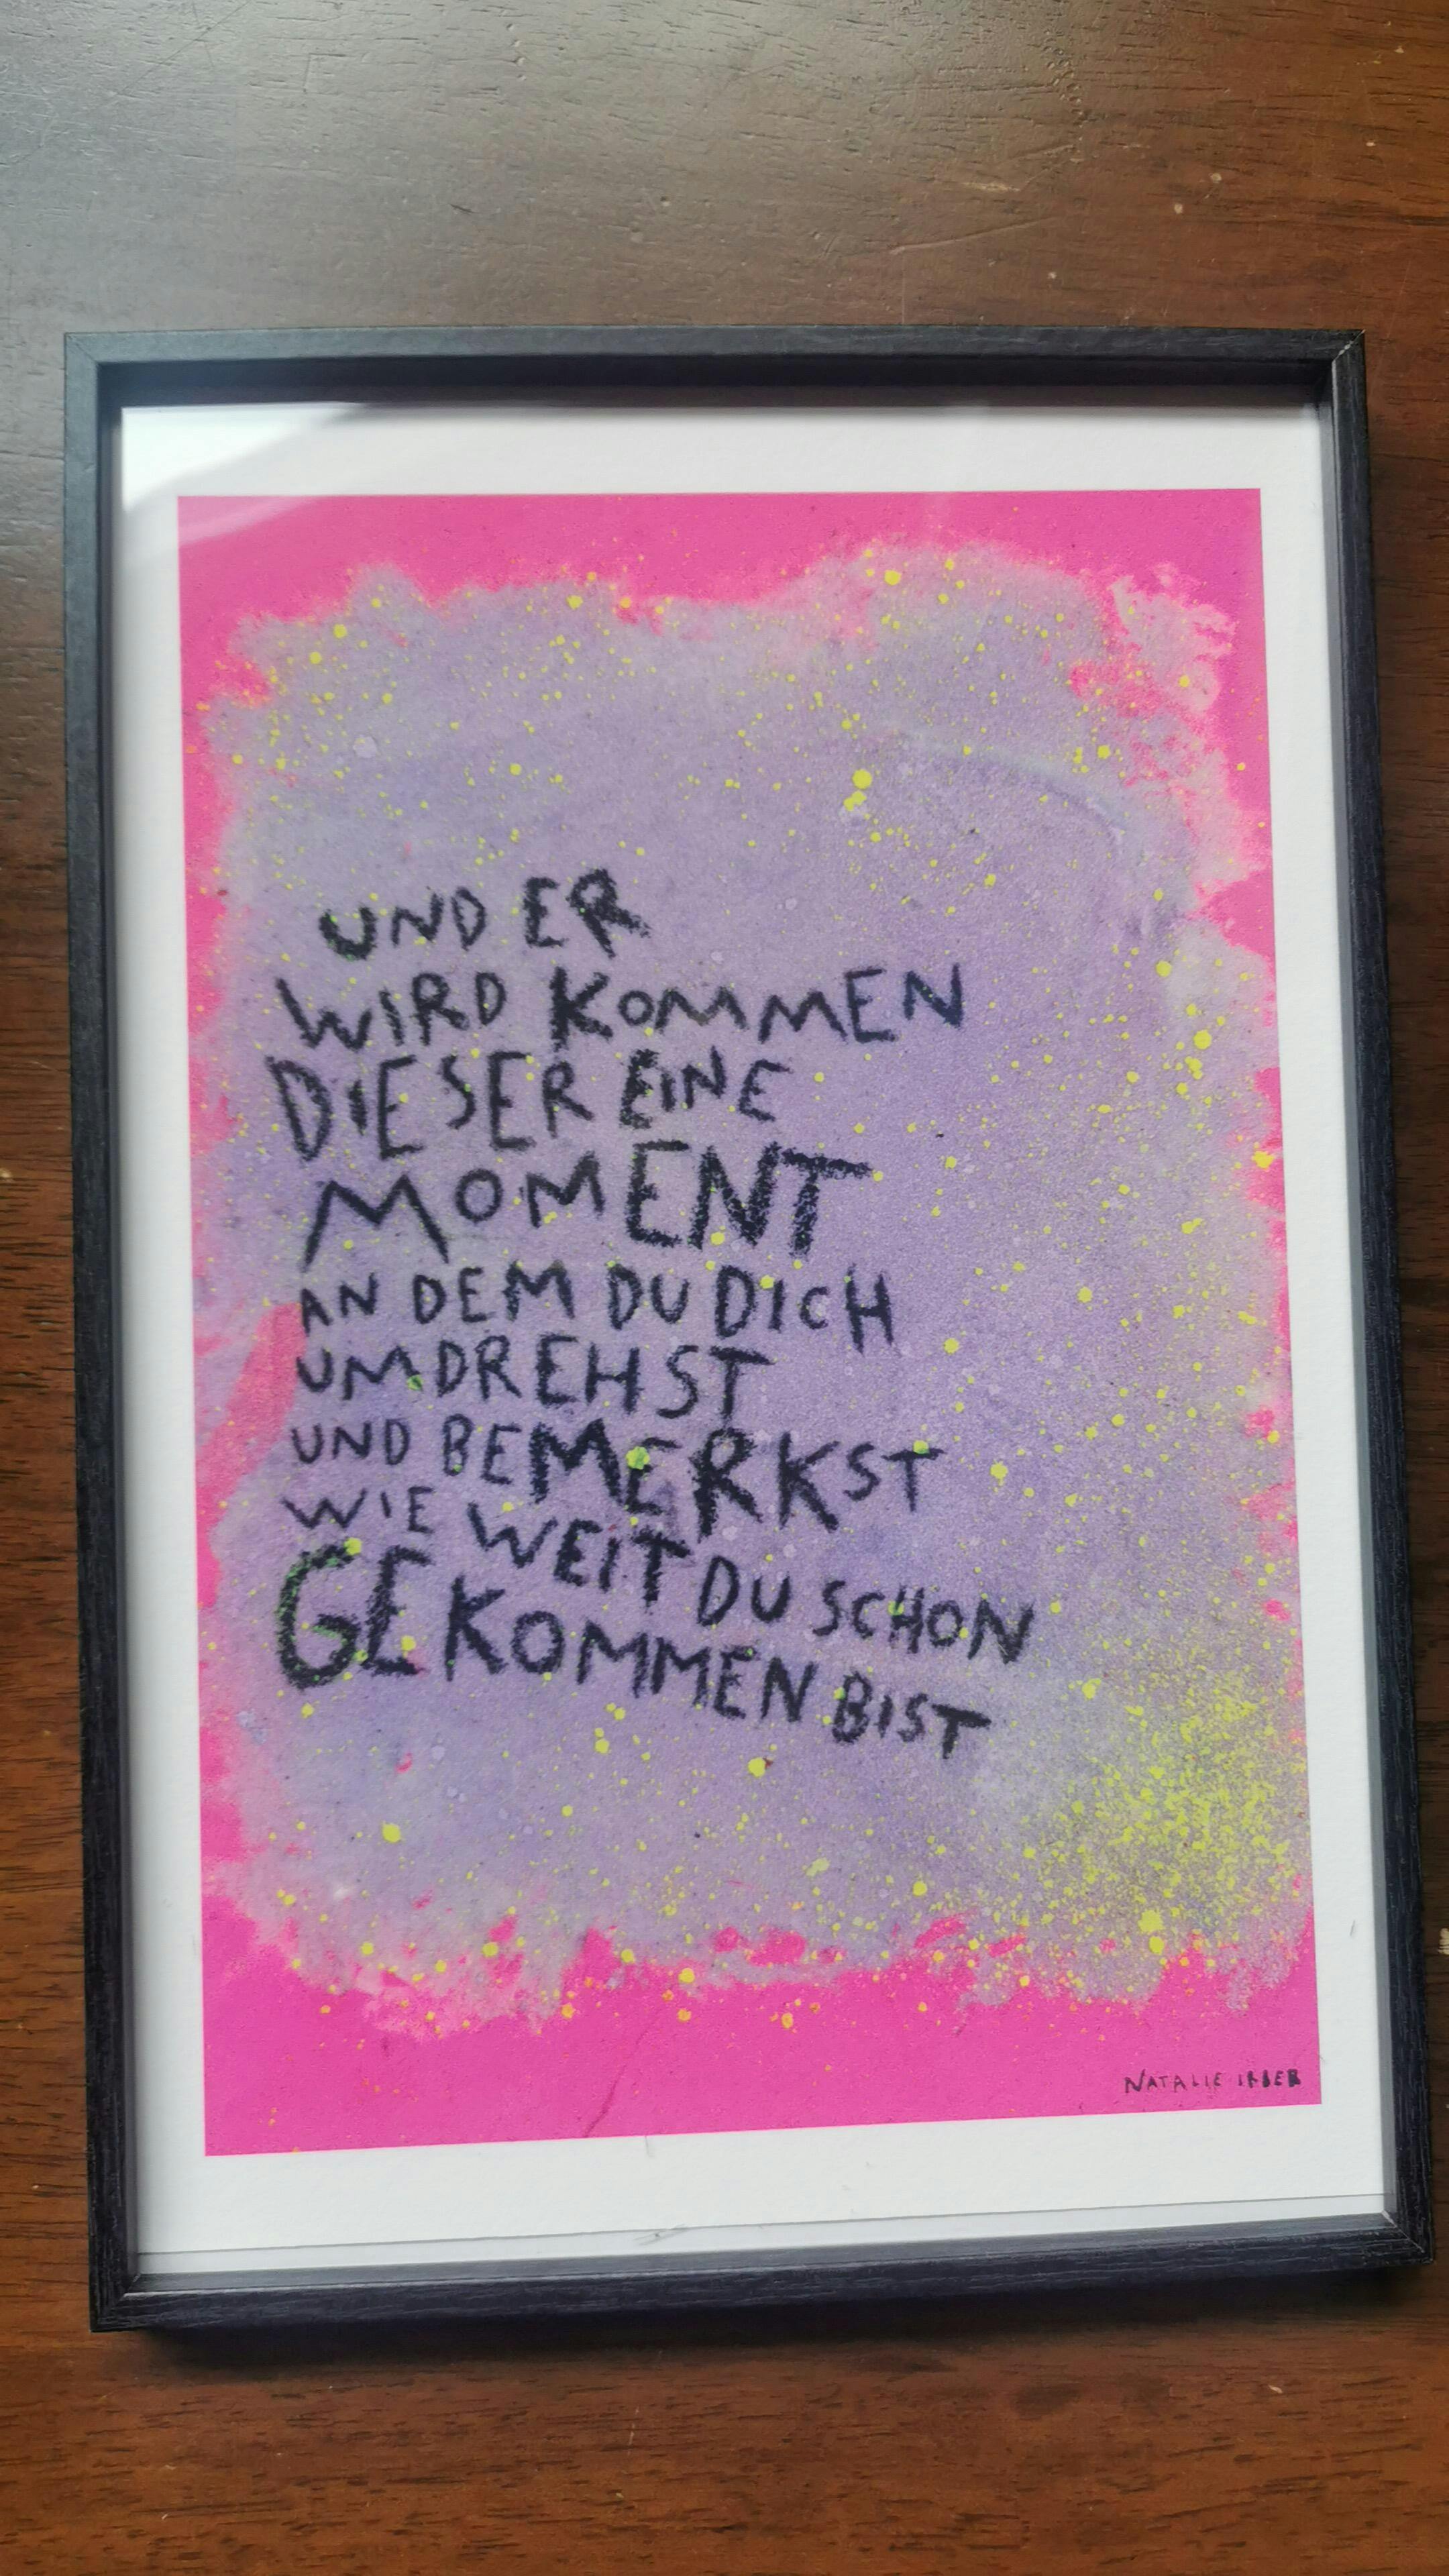 UND ER
WIRD KOMMEN
DIESER EINE
MOMENT
AN DEM DU DICH
UMDREHST
UND BEMERKST
WIE WEIT DU SCHON
GEKOMMEN BIST
NATALIE